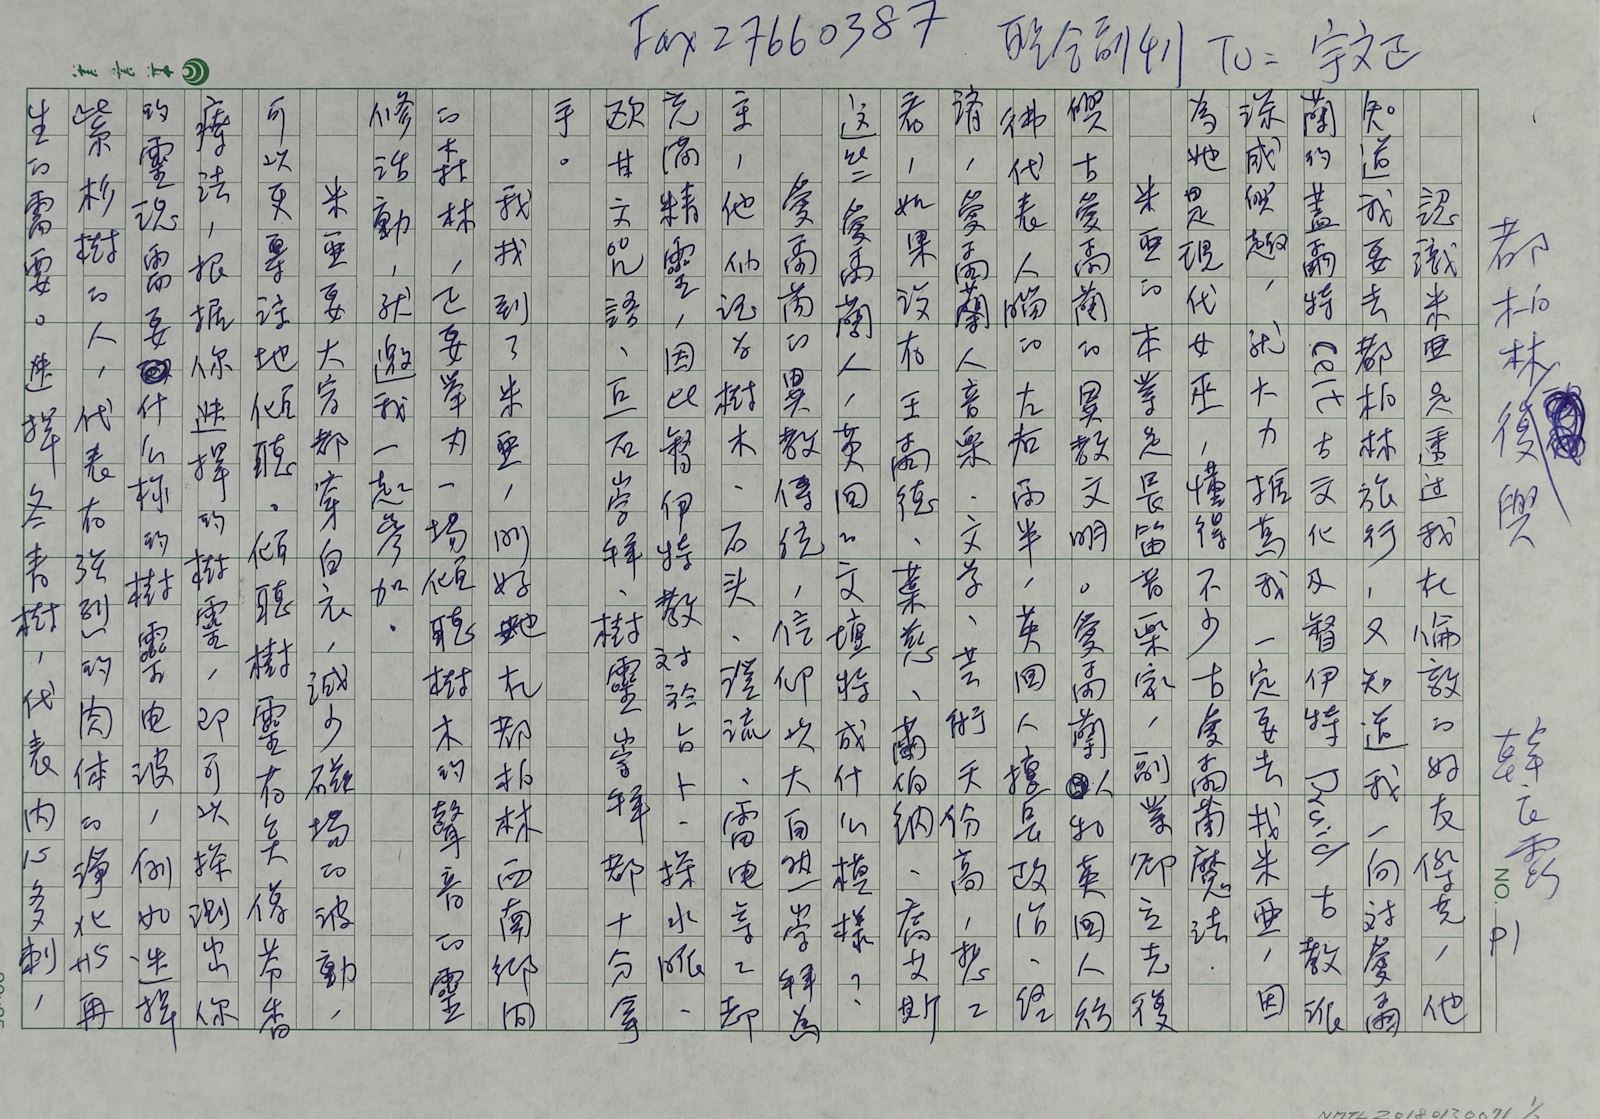 Fax 27660387 聯合副刊 To= 宇文正
都柏林復興
韓良露
NO. P1
認識米亞是透過我在倫敦的好友傑克，他
知道我要去都柏林旅行，又知道我一向對愛爾
蘭的蓋爾特 Celt 古文化及督伊特 Druid 古教派
深感興趣，就大力推薦我一定要去找米亞，因
為她是現代女巫，懂得不少古愛爾蘭魔法．
米亞的本業是長笛音樂家，副業卻立志復
興古愛爾蘭的異教文明。愛爾蘭人和英國人彷
彿代表人腦的左右兩半，英國人擅長政治、經
濟，愛爾蘭人音樂．文學、芸術天份高，想二
看，如果沒有王爾德、葉慈、蕭伯納、喬艾斯
這些愛爾蘭人，英国的文壇將成什么模樣？
愛爾蘭的異教傳統，信仰以大自然崇拜為
主，他們認為樹木、石头、溪流、雷电等二却
充滿精靈，因此督伊特教对於占卜、探水脈、
歐甘文咒語、巨石崇拜、樹靈崇拜都十分拿
手。
我找到了米亞，剛好她在都柏林西南鄉間
的森林，正要举力一場傾聽樹木的聲音的靈
修活動，就邀我一起參加．
米亞要大家都穿白衣，減少磁場的波動，
可以更專注地傾聽。傾聽樹靈有关係芳香
療法，根据你选擇的樹靈，即可以探測出你
的靈魂需要什么樣的樹靈电波，例如选擇
紫杉樹的人，代表有強烈的肉体的淨化與再
生的需要。选擇冬青樹，代表內心多刺，
NMTL20180130071 1/2